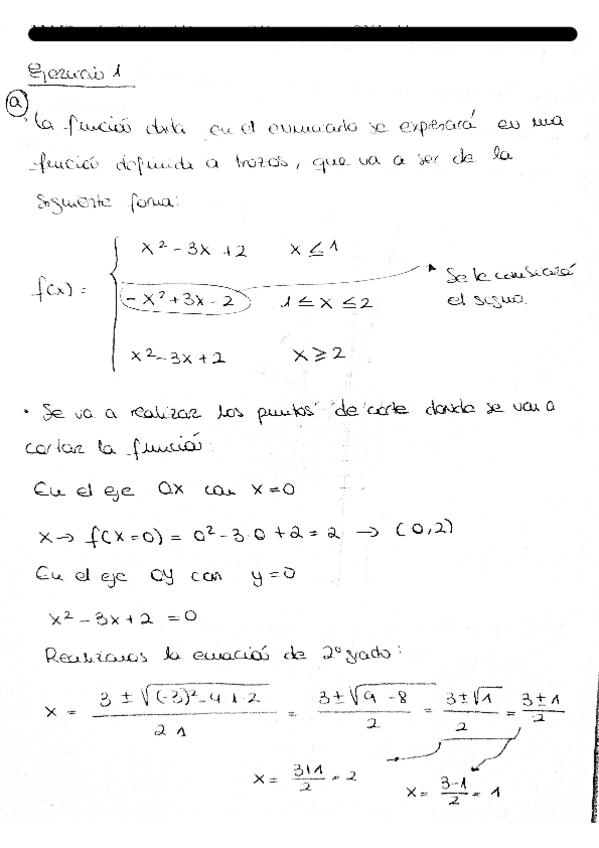 Ejercicio 1
a
La función dada en el enunciado se expresará en una
función definida a trozos, que va a ser de la
siguiente forma:
x² - 3x + 2 x ≤ 1
f(x) = - x² + 3x - 2 1 ≤ x ≤ 2
Se le cambiará
el signo.
x² - 3x + 2 x ≥ 2
· Se va a realizar los puntos de corte donde se van a
cortar la función:
En el eje OX con x = 0
x → f(x = 0) = 0² - 3·0 + 2 = 2 → (0,2)
En el eje OY con y = 0
x² - 3x + 2 = 0
Realizamos la ecuación de 2º grado:
x = 3 ± √(-3)² - 4·1·2 / 2·1 = 3 ± √9 - 8 / 2 = 3 ± √1 / 2 = 3 ± 1 / 2
x = 3+1 / 2 = 2 x = 3-1 / 2 = 1